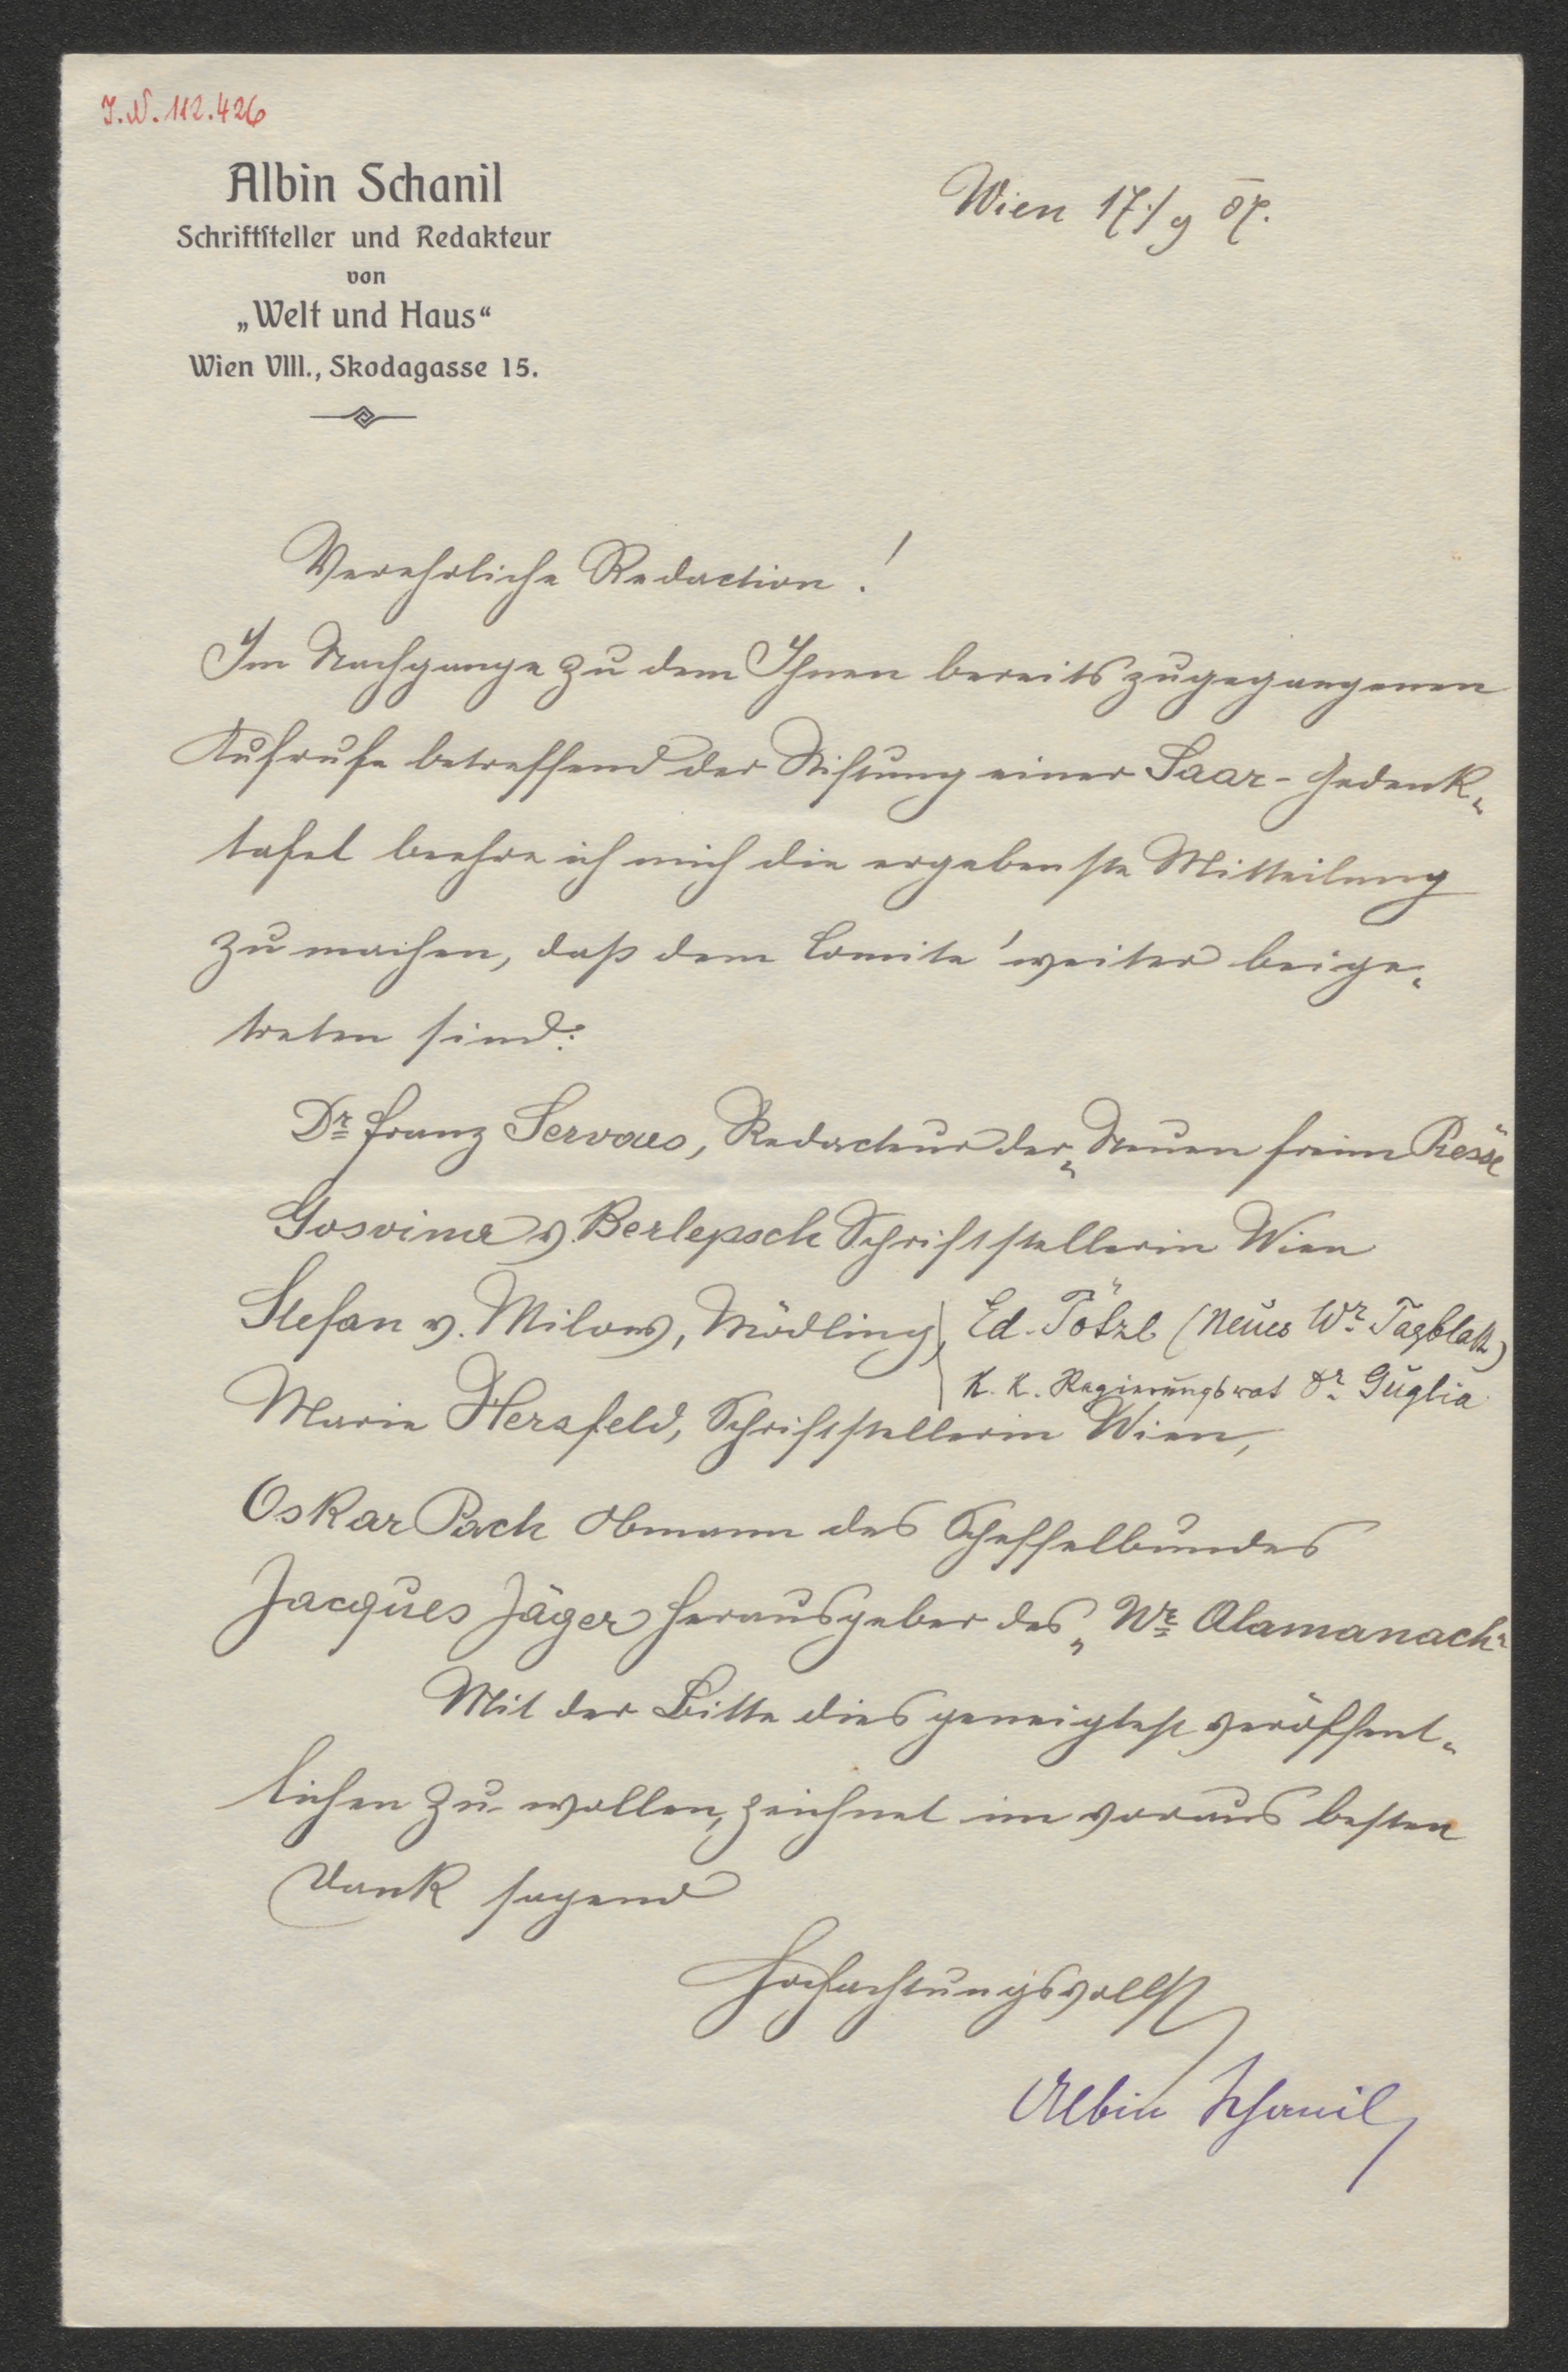 J.N. 112.426
Albin Schanil
Schriftsteller und Redakteur
von
„Welt und Haus“
Wien VIII., Skodagasse 15.
Wien 17./9 07.
Verehrliche Redaction!
Im Nachgange zu dem Ihnen bereits zugegangenen
Aufrufe betreffend der Stiftung einer Saar-Gedenk„
tafel beehre ich mich die ergebenste Mitteilung
zu machen, daß dem Comité weiter beige„
treten sind:
Dr. Franz Servaes, Redacteur der „Neuen freien Presse"
Gosvina v. Berlepsch Schriftstellerin Wien
Stefan v. Milow, Mödling, Ed. Pötzl (Neues Wr. Tagblatt)
K. K. Regierungsrat Dr. Guglia
Marie Herzfeld, Schriftstellerin Wien,
Oskar Pach Obmann des Scheffelbundes
Jacques Jäger Herausgeber des „Wr. Alamanach"
Mit der Bitte dies geneigtest veröffent„
lichen zu wollen, zeichnet im voraus besten
Dank sagend
Hochachtungsvollst
Albin Schanil